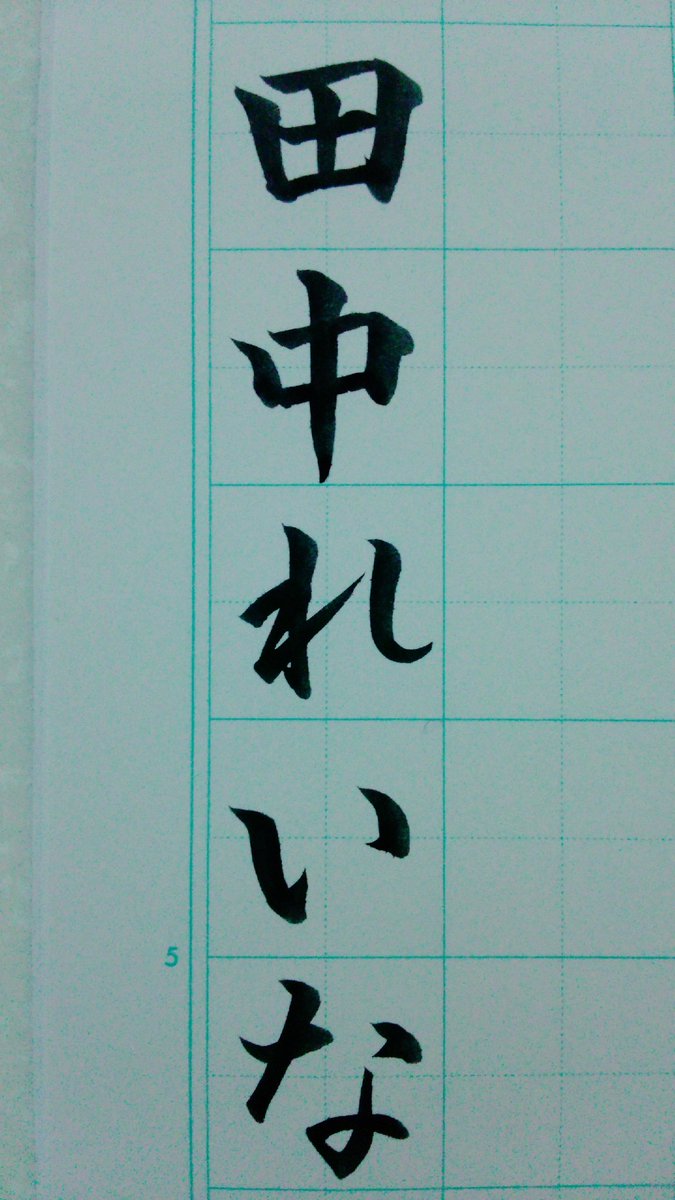 田中れいな
5